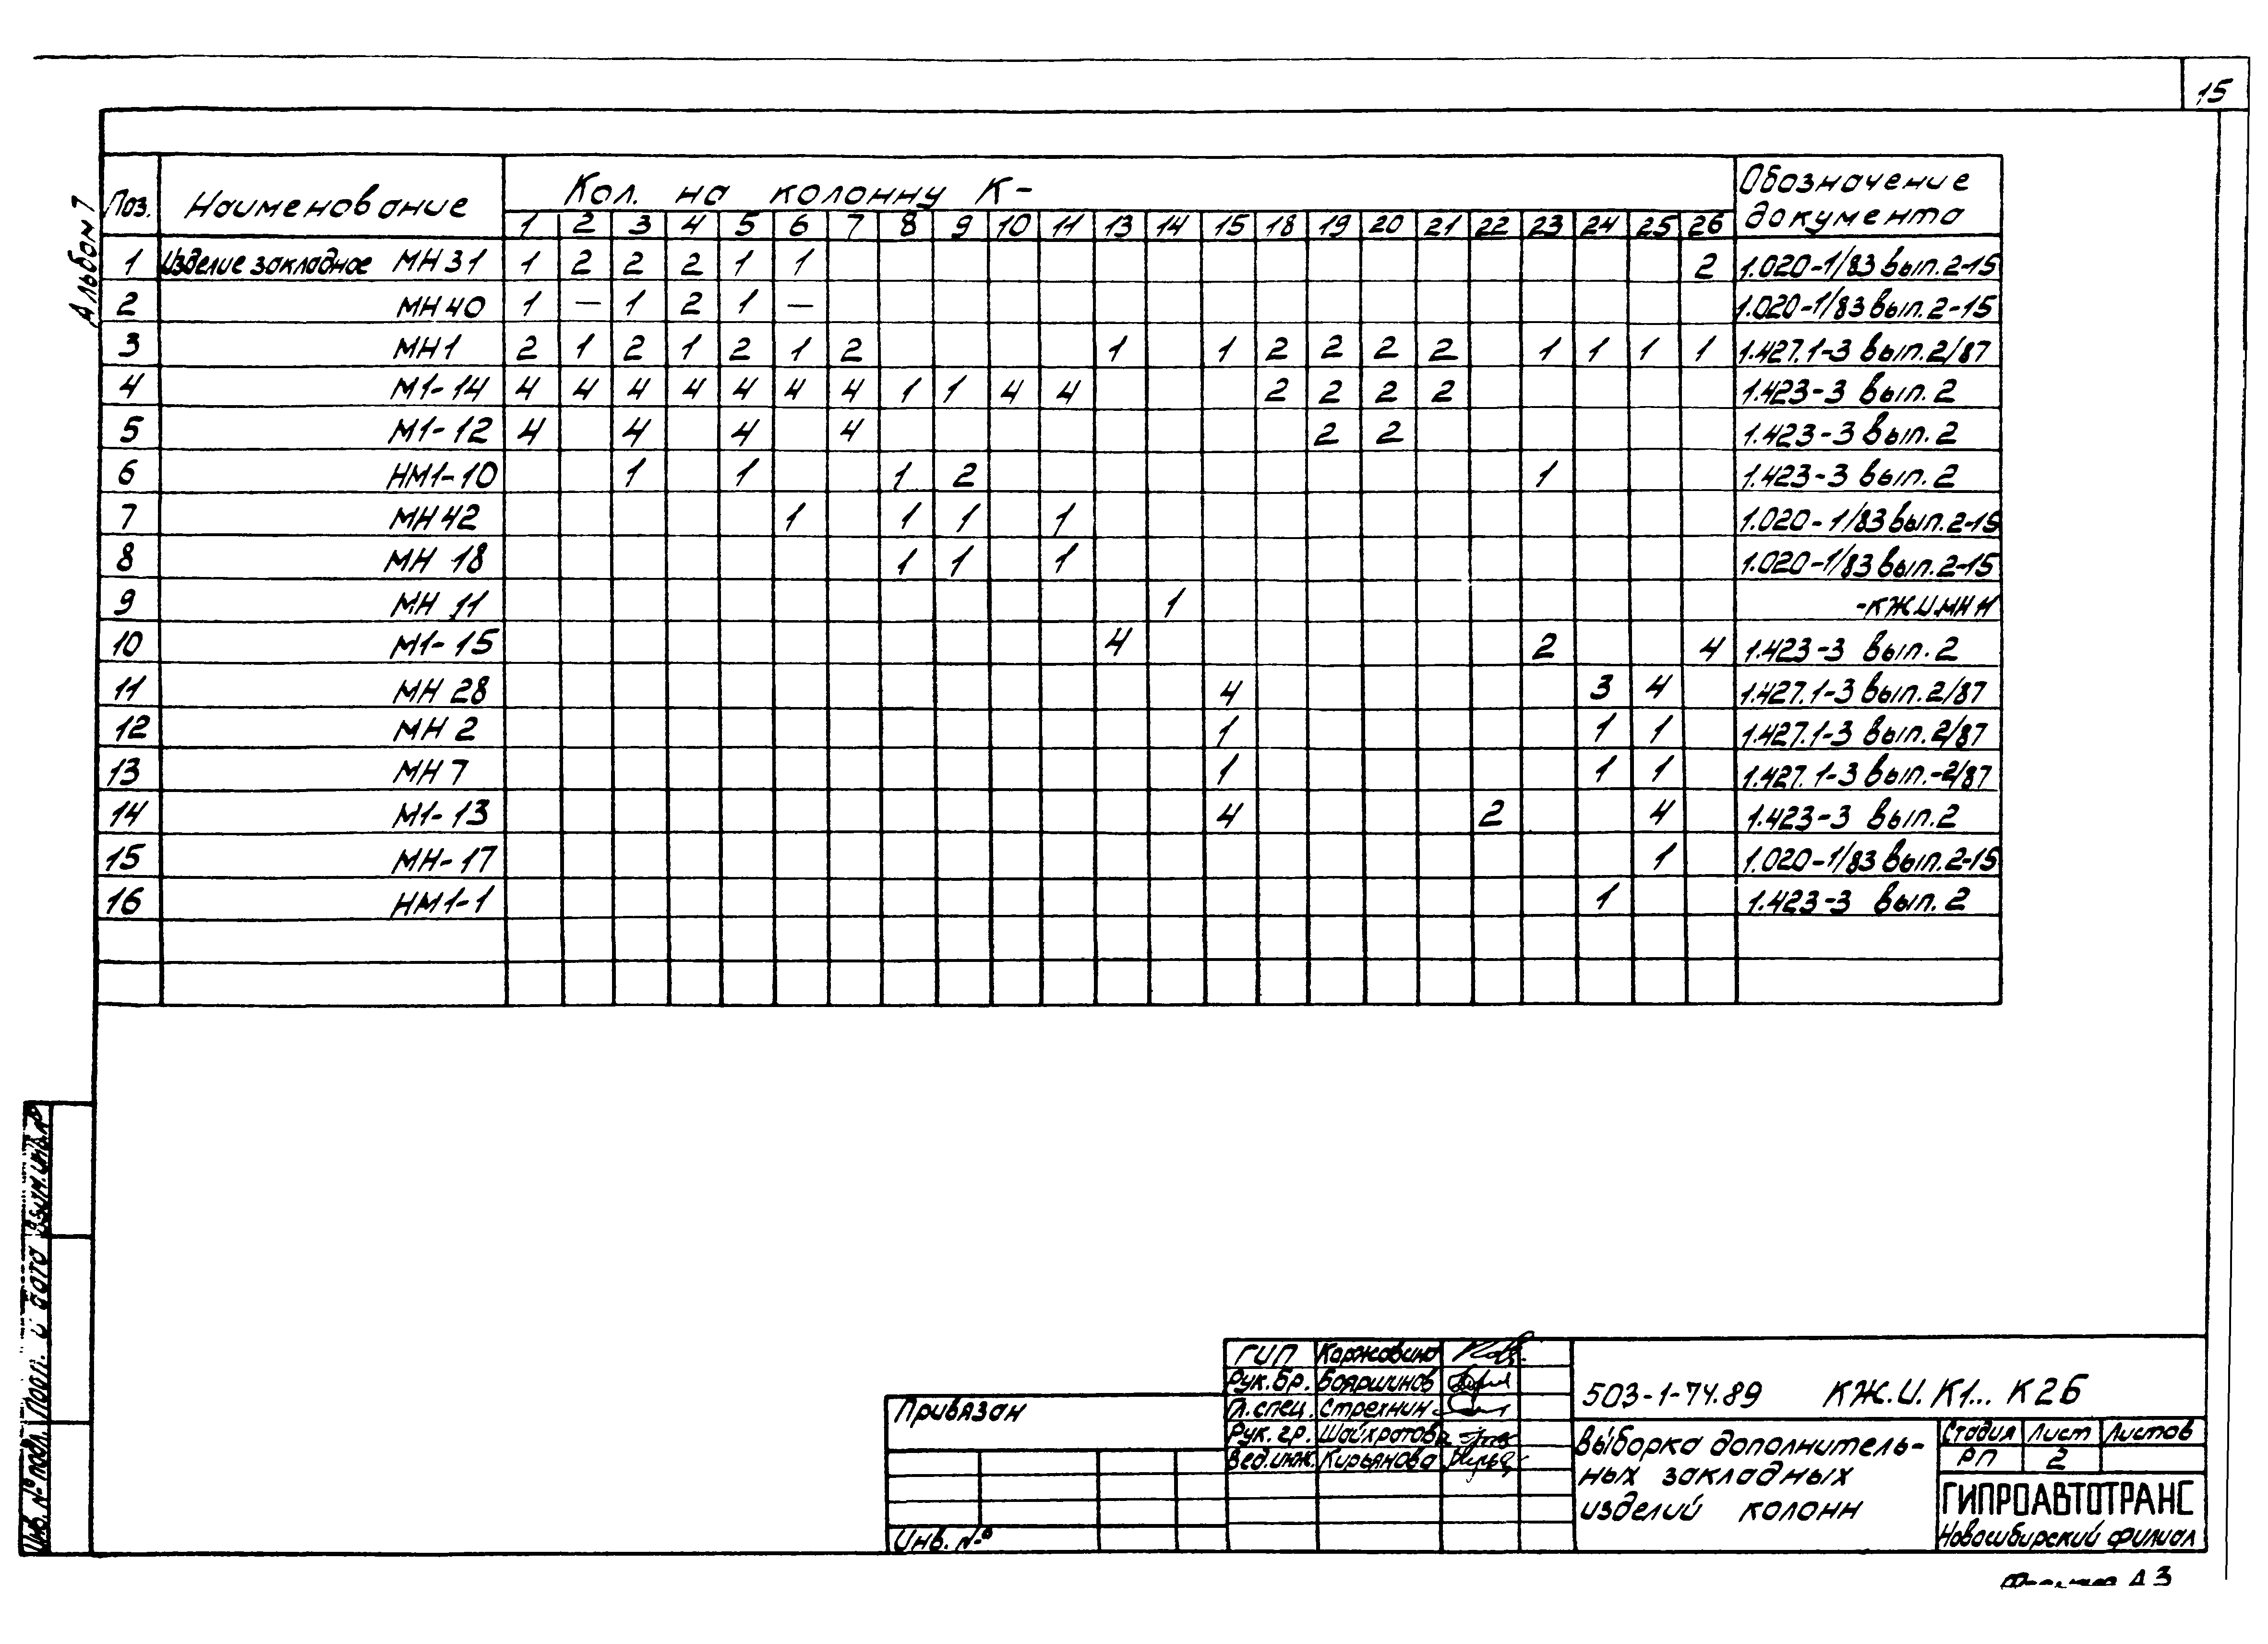 15
Альбом 7
Поз. Наименование Кол. на колонну К- Обозначение документа
1 2 3 4 5 6 7 8 9 10 11 13 14 15 18 19 20 21 22 23 24 25 26
1 Изделие закладное МН 31 1 2 2 2 1 1 2 1.020-1/83 вып.2-15
2 МН 40 1 — 1 2 1 — 1.020-1/83 вып.2-15
3 МН1 2 1 2 1 2 1 2 1 1 2 2 2 2 1 1 1 1 1.427.1-3 вып.2/87
4 М1-14 4 4 4 4 4 4 4 1 1 4 4 2 2 2 2 1.423-3 вып.2
5 М1-12 4 4 4 4 2 2 1.423-3 вып.2
6 НМ1-10 1 1 1 2 1 1.423-3 вып.2
7 МН 42 1 1 1 1 1.020-1/83 вып.2-15
8 МН 18 1 1 1 1.020-1/83 вып.2-15
9 МН 11 1 -КЖ.И.МН 11
10 М1-15 4 2 4 1.423-3 вып.2
11 МН 28 4 3 4 1.427.1-3 вып.2/87
12 МН 2 1 1 1 1.427.1-3 вып.2/87
13 МН 7 1 1 1 1.427.1-3 вып.-2/87
14 М1-13 4 2 4 1.423-3 вып.2
15 МН-17 1 1.020-1/83 вып.2-15
16 НМ1-1 1 1.423-3 вып.2
Инв. № подл. Подп. и дата Взам.инв.№
Привязан
Инв. №
ГИП Коржавина
Рук.бр. Бояршинов
Гл.спец. Стрехнин
Рук.гр. Шайхратова
Вед.инж. Кирьянова
503-1-74.89 КЖ.И.К1... К26
Выборка дополнитель-
ных закладных
изделий колонн
Стадия Лист Листов
РП 2
ГИПРОАВТОТРАНС
Новосибирский филиал
Формат А3